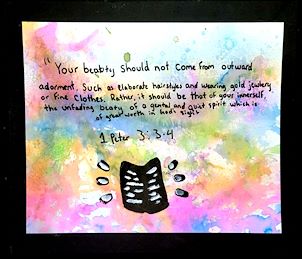 " Your beabty should not come from outward
adorment. Such as Elaborate hairstyles and wearing gold jewlery
or Fine Clothes. Rather, it should be that of your innerself,
the unfading beaty of a gental and quit spirit which is
of great worth in Gods sight
1 Peter 3:3-4